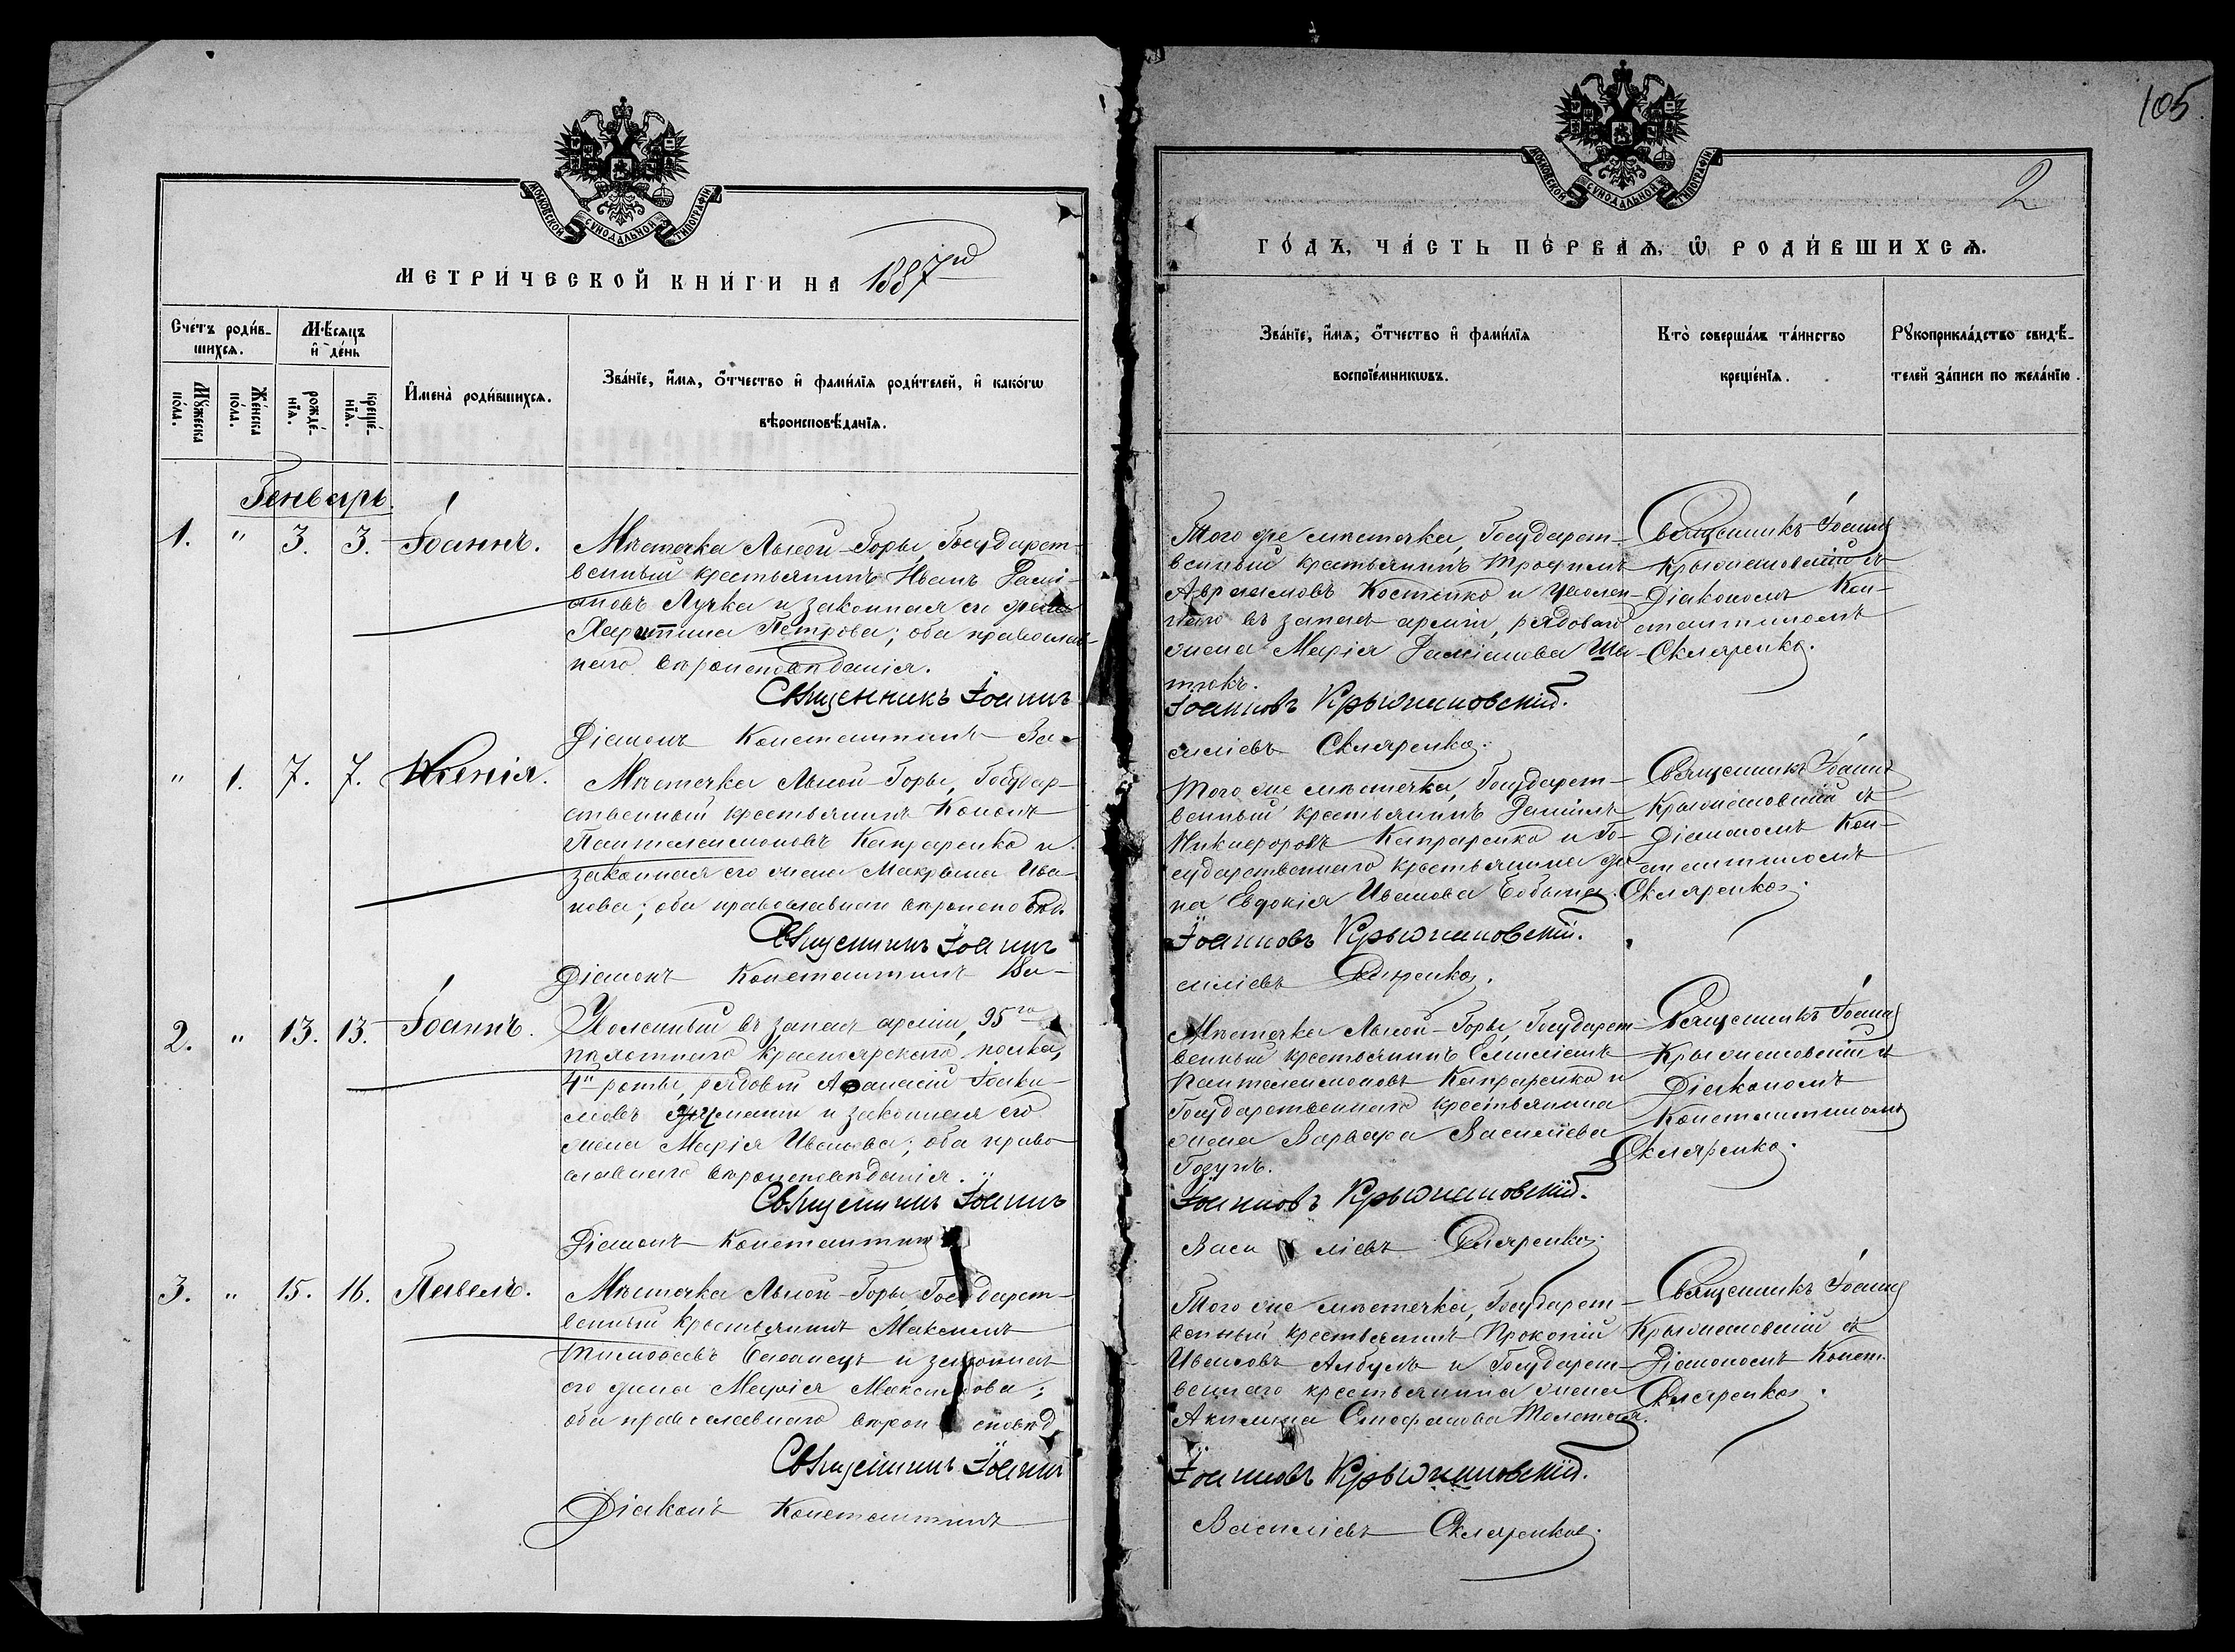 105
МОСКОВСКОЙ СѴНОДАЛЬНОЙ ТИПОГРАФІИ
МЕТРИ́ЧЕСКОЙ КНИ́ГИ НА 1887й
Сче́тъ роди́в-
шихсѧ.
Мꙋ́жеска
по́ла.
Же́нска
по́ла.
Мѣ́сѧцъ
и҆ де́нь
рожде́-
нїѧ.
креще́-
нїѧ.
И҆мена̀ роди́вшихсѧ.
Зва́нїе, и҆́мѧ, ѻ҆́тчество и҆ фами́лїѧ роди́телей, и҆ како́гѡ
вѣроисповѣ́данїѧ.
Генварь.
1. " 3. 3. Іоаннъ.
Мѣстечка Лысой-Горы, Государст-
венный крестьянинъ Иванъ Дамі-
ановъ Лучка и законная его жена
Харитина Петрова; оба православ-
наго вѣроисповѣданія.
Священникъ Іоаннъ
Діаконъ Константинъ Ва-
" 1. 7. 7. Ксенія.
Мѣстечка Лысой-Горы, Государ-
ственный крестьянинъ Кононъ
Пантелеимоновъ Капраренко и
законная его жена Макрына Ива-
нова; оба православнаго вѣроисповѣд.
Священникъ Іоаннъ
Діаконъ Константинъ Ва-
2. " 13. 13. Іоаннъ.
Уволенный въ запасъ арміи, 95го
пѣхотнаго Красноярскаго полка,
4й роты, рядовой Аѳанасій Іоаки-
мовъ и законная его
жена Марія Иванова; оба право-
славнаго вѣроисповѣданія.
Священникъ Іоаннъ
Діаконъ Константинъ
3. " 15. 16. Павелъ.
Мѣстечка Лысой-Горы, Государст-
венный крестьянинъ Максимъ
Тимоѳеевъ и законная
его жена Марія Максимова;
оба православнаго вѣроисповѣд.
Священникъ Іоаннъ
Діаконъ Константинъ
МОСКОВСКОЙ СѴНОДАЛЬНОЙ ТИПОГРАФІИ
2
ГО́ДЪ, ЧА́СТЬ ПЕ́РВАѦ, Ѡ҆ РОДИ́ВШИХСѦ.
Зва́нїе, и҆́мѧ, ѻ҆́тчество и҆ фами́лїѧ
воспрїе́мникѡвъ.
Кто̀ соверша́лъ та́инство
креще́нїѧ.
Рꙋкоприкла́дство свидѣ́-
телей за́писи по жела́нїю.
Того же мѣстечка, Государст-
венный крестьянинъ Трофимъ
Аврамовъ Костенко и уволен-
наго въ запасъ арміи, рядоваго
жена Марія Даміанова Ша-
Іоанновъ Крыжановскій.
силіевъ Скляренко.
Священникъ Іоаннъ
Крыжановскій съ
Діакономъ Кон-
стантиномъ
Скляренко.
Того же мѣстечка, Государст-
венный крестьянинъ Даніилъ
Никифоровъ Капраренко и Го-
сударственнаго крестьянина же-
на Евдокія Иванова
Іоанновъ Крыжановскій.
силіевъ Скляренко.
Священникъ Іоаннъ
Крыжановскій съ
Діакономъ Кон-
стантиномъ
Скляренко.
Мѣстечка Лысой-Горы, Государст-
венный крестьянинъ Емиліанъ
Пантелеимоновъ Капраренко и
Государственнаго крестьянина
жена Варвара Василіева
Іоанновъ Крыжановскій.
Васи ліевъ Скляренко.
Священникъ Іоаннъ
Крыжановскій съ
Діакономъ
Константиномъ
Скляренко.
Того же мѣстечка, Государст-
венный крестьянинъ Прокопій
Ивановъ и Государст-
веннаго крестьянина жена
Акилина Стефанова
Іоанновъ Крыжановскій.
Василіевъ Скляренко.
Священникъ Іоаннъ
Крыжановскій съ
Діакономъ Конст.
Скляренко.